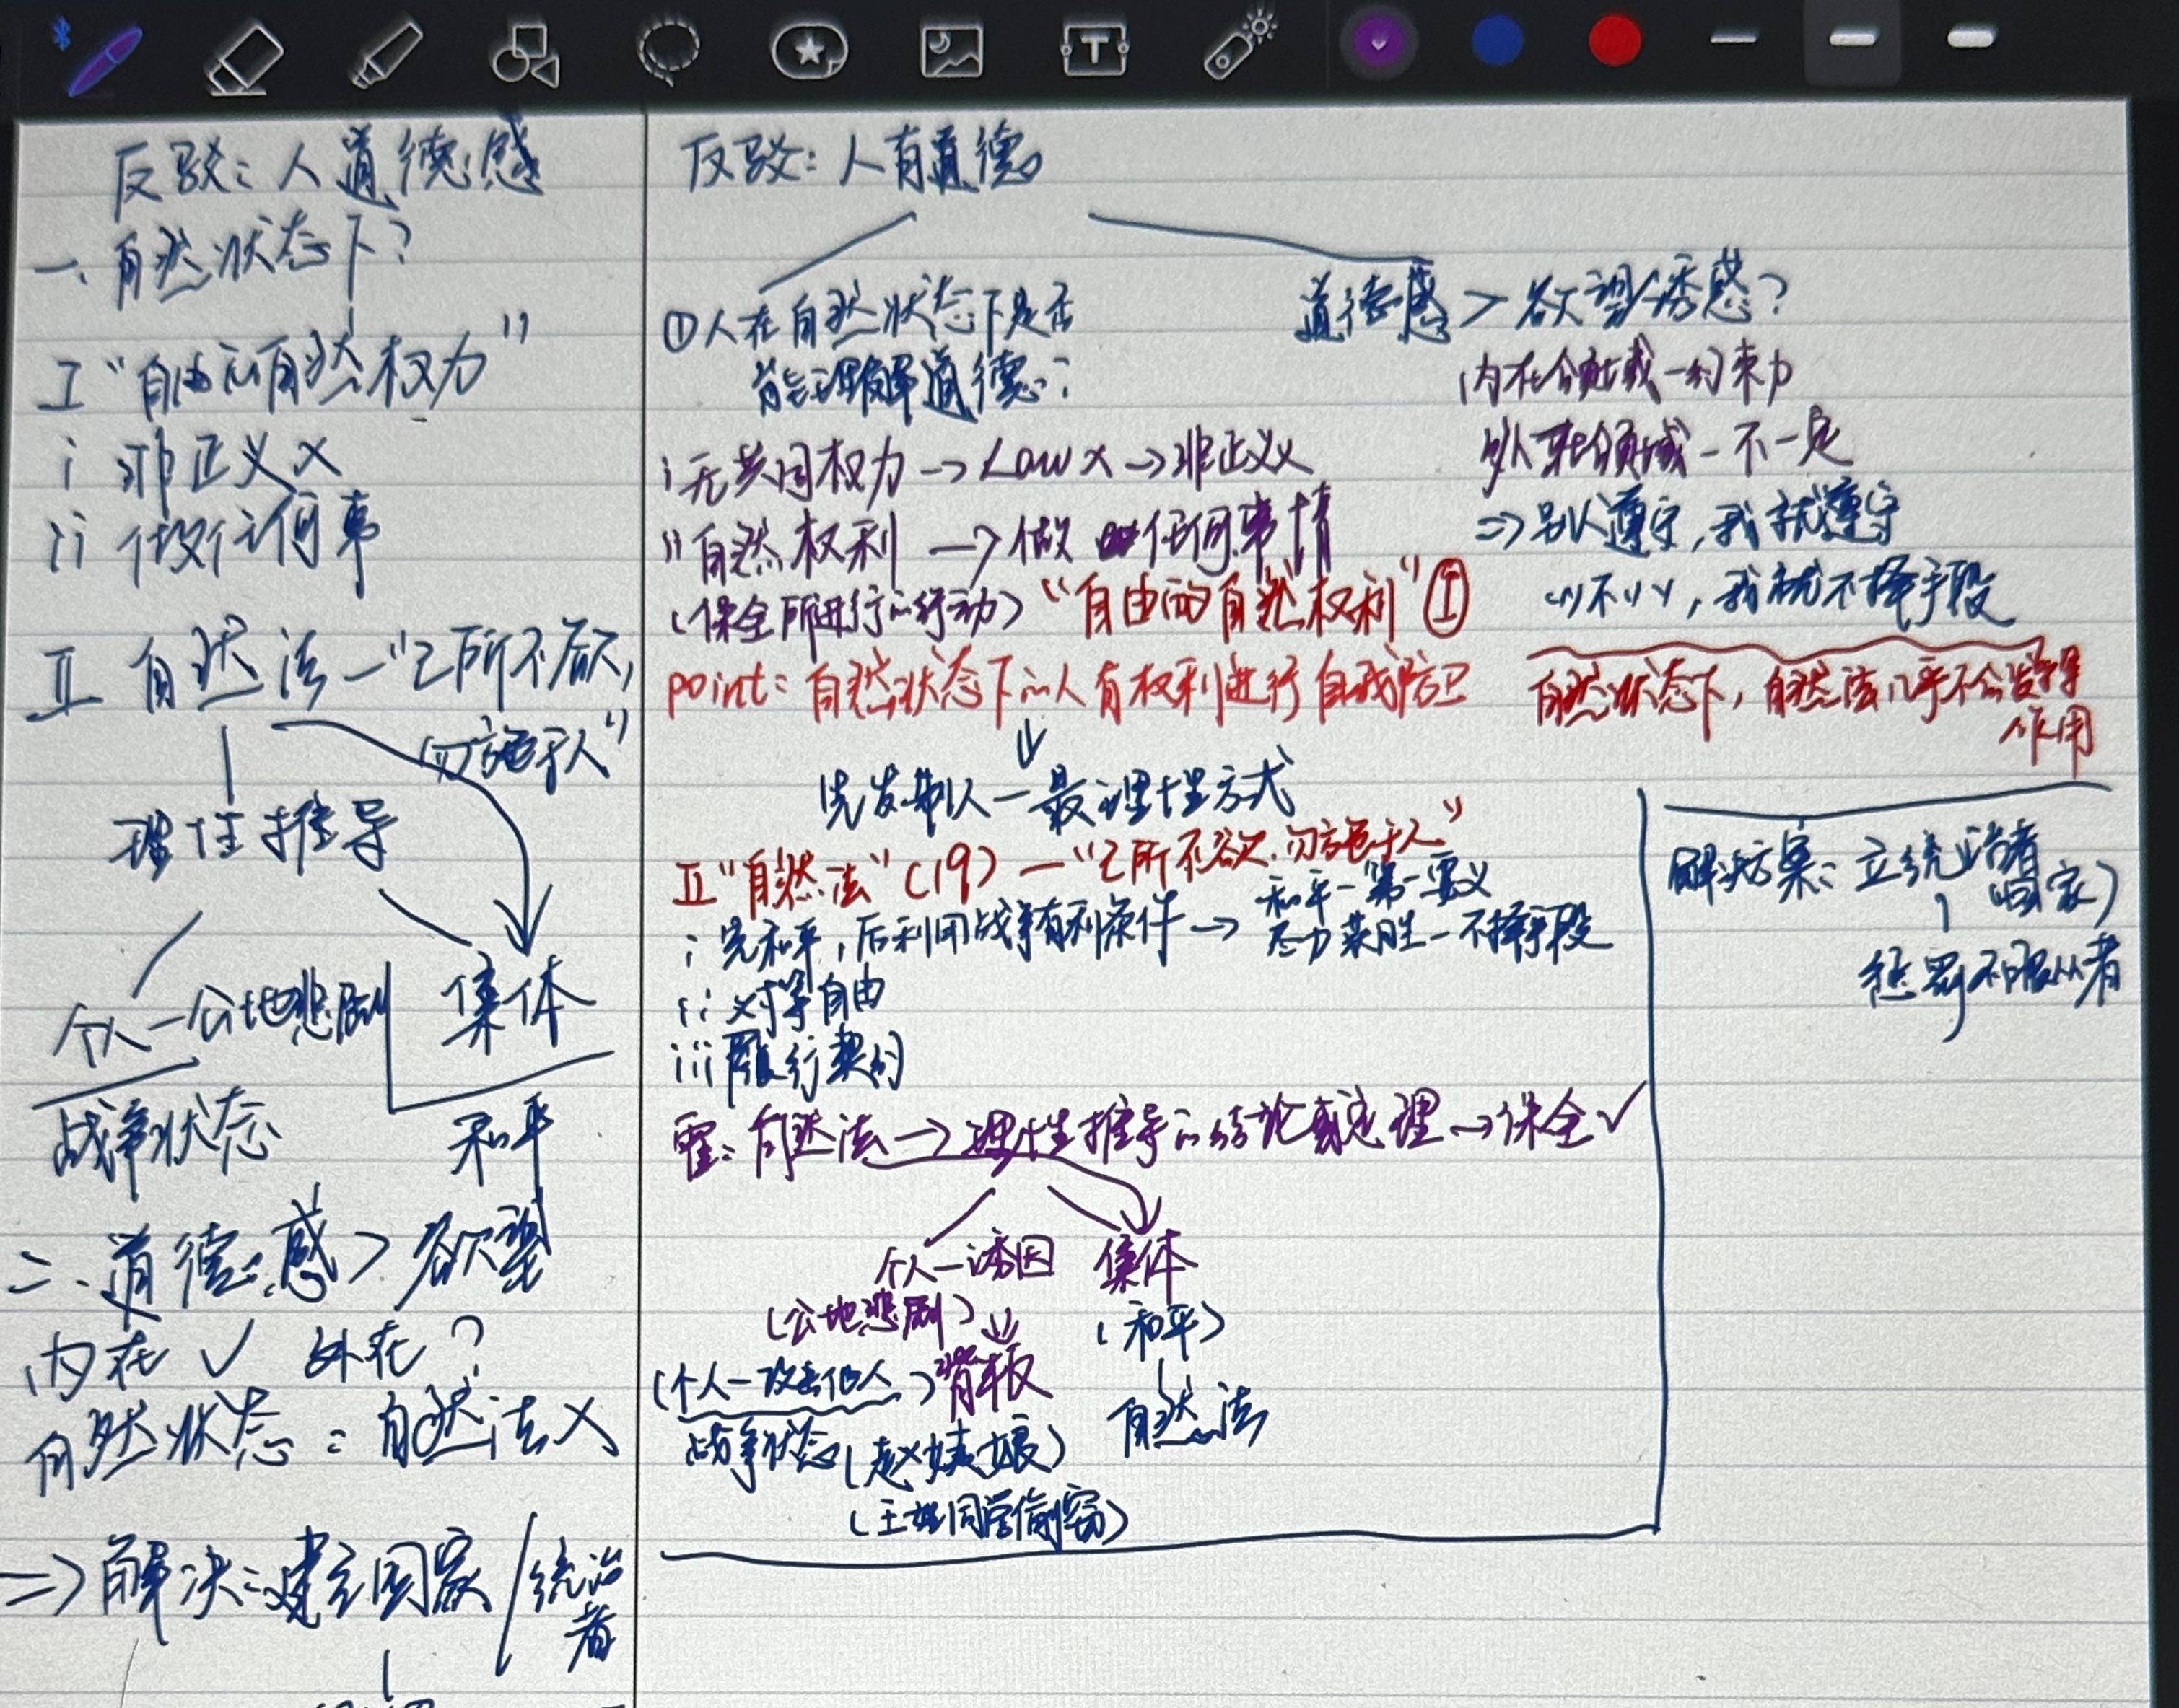 反驳：人道德感
一、自然状态下？
I “自由的自然权力”
i 非正义 X
ii 做任何事
II 自然法—“己所不欲，
勿施于人”
理性推导
个人—公地悲剧
集体
战争状态
和平
二、道德感 > 欲望
内在 ✓ 外在？
自然状态：自然法 X
=> 解决：建立国家/统治
者
反驳：人有道德
①人在自然状态下是否
能理解道德？
i 无共同权力 → Law X → 非正义 X
ii 自然权利 → 做任何事情
（保全所进行的行动）“自由的自然权利” ①
point：自然状态下的人有权利进行自我防卫
先发制人—最理性方式
II “自然法”（19）—“己所不欲，勿施于人”
i 先和平，后利用战争有利条件 → 和平—第一要义
尽力获胜—不择手段
ii 对等自由
iii 履行契约
霍：自然法 → 理性推导的结论或定理 → 保全 ✓
个人—诱因 集体
（公地悲剧） （和平）
（个人—攻击他人） 背叛
自然法
战争状态（赵姨娘）
道德感 > 欲望/诱惑？
内在领域—约束力
外在领域—不一定
=> 别人遵守，我就遵守
〃不〃，我就不择手段
自然状态下，自然法几乎不会发挥
作用
解决方案：立统治者
（国家）
惩罚不服从者